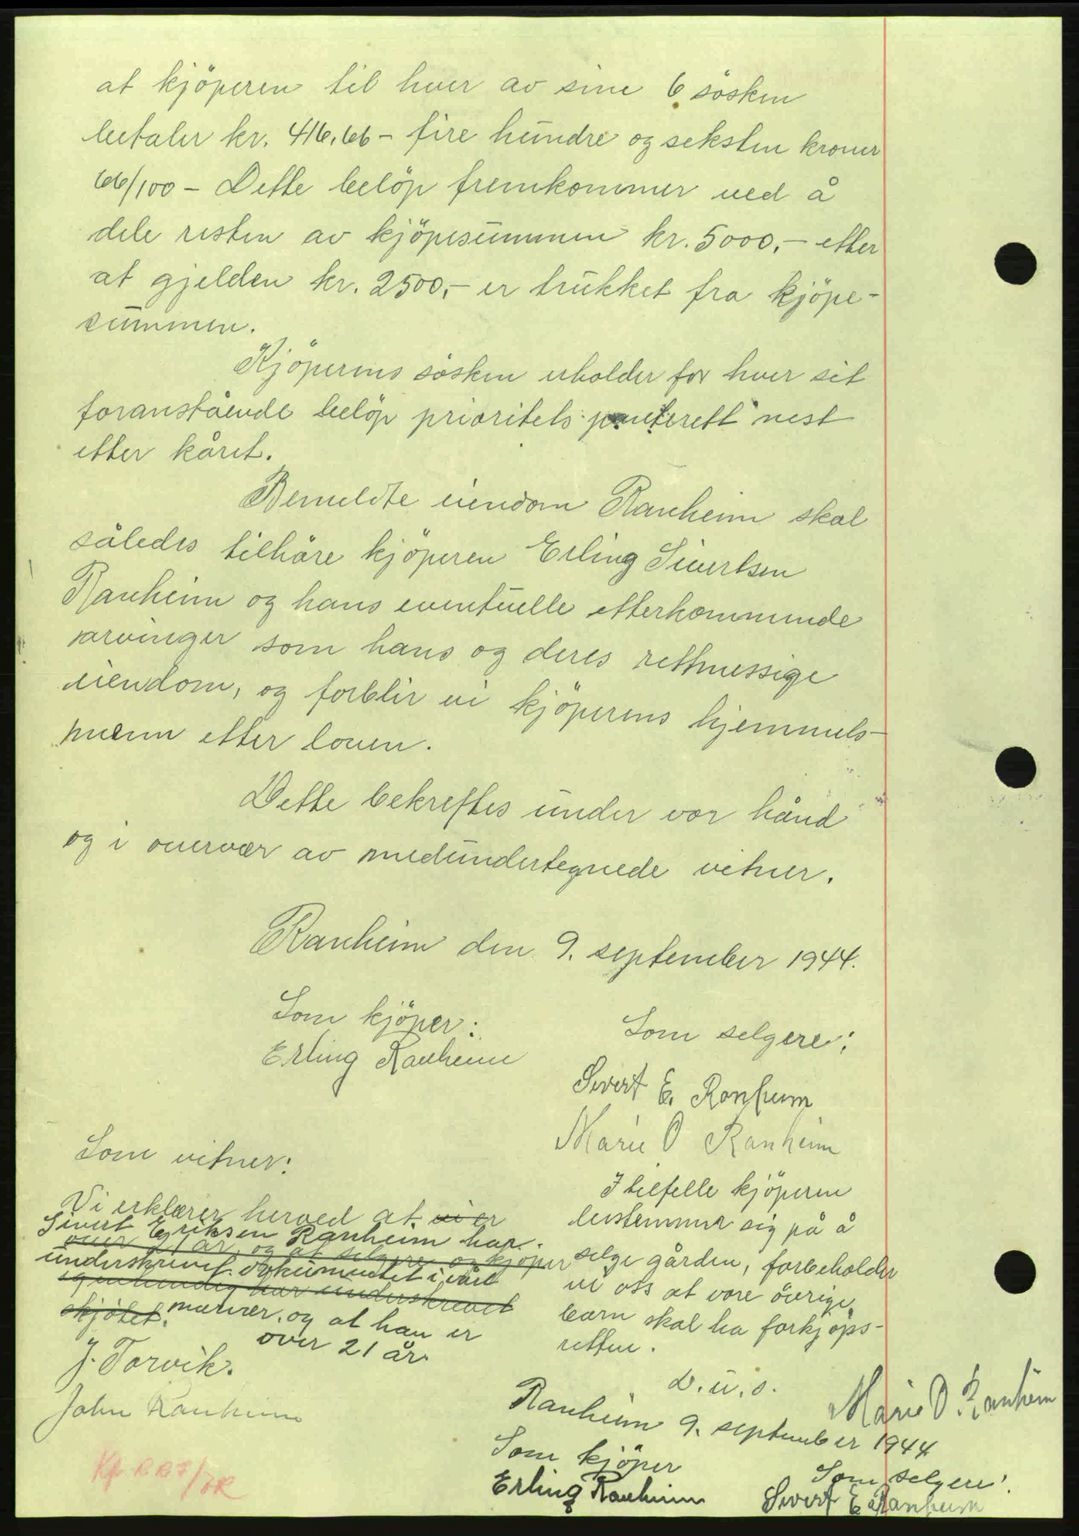 at kjöperen til hver av sine 6 sösken
betaler kr. 416,66 – fire hundre og seksten kroner
66/100 – Dette belöp fremkommer ved å
dele resten av kjöpesummen kr. 5000,– etter
at gjelden kr. 2500,– er trukket fra kjöpe-
summen.
Kjöperens sösken erholder for hver sit
foranstående belöp prioritets panterett nest
etter kåret.
Bemeldte eiendom Ranheim skal
således tilhöre kjöperen Erling Sivertsen
Ranheim og hans eventuelle etterkommende
arvinger som hans og deres rettmessige
eiendom, og forblir vi kjöperens hjemmels-
menn etter loven.
Dette bekreftes under vor hånd
og i overvær av medundertegnede vitner.
Ranheim den 9. september 1944.
Som kjöper:
Erling Ranheim
Som selgere:
Sivert E. Ranheim
Marie O Ranheim
Som vitner:
Vi erklærer herved at vi er
Sivert Eriksen Ranheim har
over 21 år, og at selgere og kjöper
underskrevet dokumentet i vårt
egenhendig har underskrevet
skjötet. nærvær, og at han er
over 21 år.
J. Torvik.
John Ranheim
I tilfelle kjöperen
bestemmer sig på å
selge gården, forbeholder
vi oss at vore övrige
barn skal ha forkjöps-
retten.
D.u.s.
Ranheim 9. september 1944
Marie O. Ranheim
Som kjöper
Erling Ranheim
Som selgere:
Sivert E Ranheim